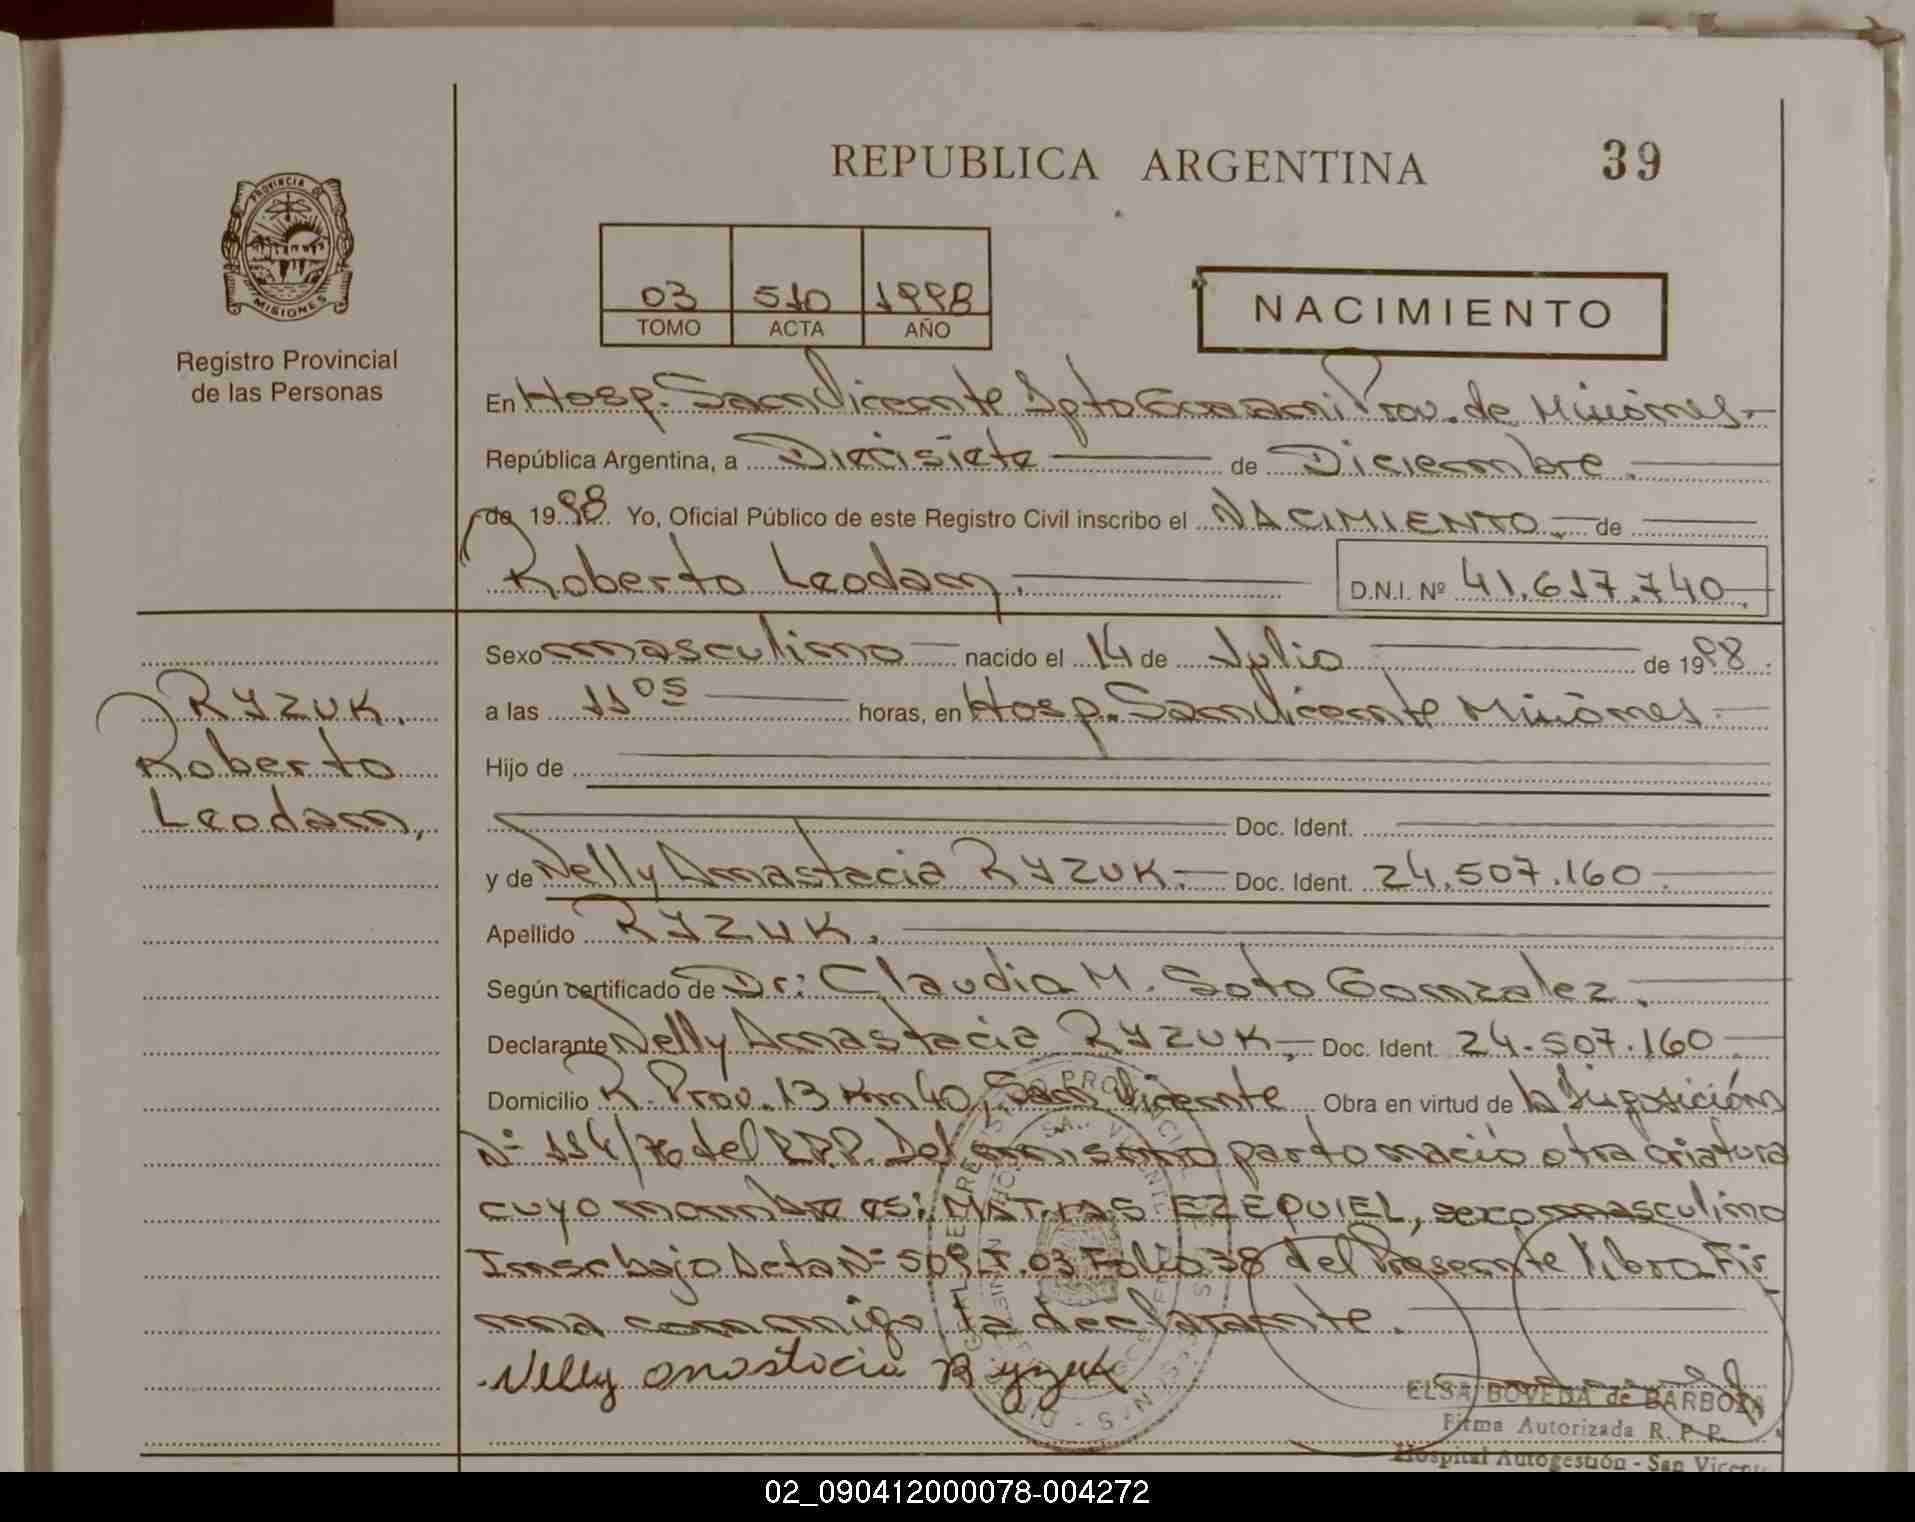 REPUBLICA ARGENTINA
39
PROVINCIA DE
MISIONES
Registro Provincial
de las Personas
03 510 1998
TOMO ACTA AÑO
NACIMIENTO
En Hosp. San Vicente Dpto Guarani Prov. de Misiones
República Argentina, a Diecisiete de Diciembre.
de 1998 Yo, Oficial Público de este Registro Civil inscribo el NACIMIENTO de
Roberto Leodan,
D.N.I. Nº 41.617.740.
Sexo masculino nacido el 14 de Julio de 1998
a las 11 05 horas, en Hosp. San Vicente Misiones
Hijo de
Doc. Ident.
y de Nelly Anastacia RYZUK. Doc. Ident. 24.507.160.
Apellido RYZUK.
Según certificado de Dr: Claudia M. Soto Gonzalez.
Declarante Nelly Anastacia RYZUK, Doc. Ident. 24.507.160
Domicilio R. Prov. 13 Km 40, San Vicente Obra en virtud de la Disposición
Nº 114/76 del R.P.P. Del mismo parto nació otra criatura
cuyo nombre es: MATIAS EZEQUIEL, sexo masculino
Insc bajo Acta Nº 509 T. 03 Folio 38 del Presente libro Fir
ma conmigo la declarante.
Nelly anastacia Ryzuk
RYZUK.
Roberto
Leodan,
ELSA BOVEDA de BARBOZA
Firma Autorizada R. P. P.
Hospital Autogestión - San Vicente
02_090412000078-004272